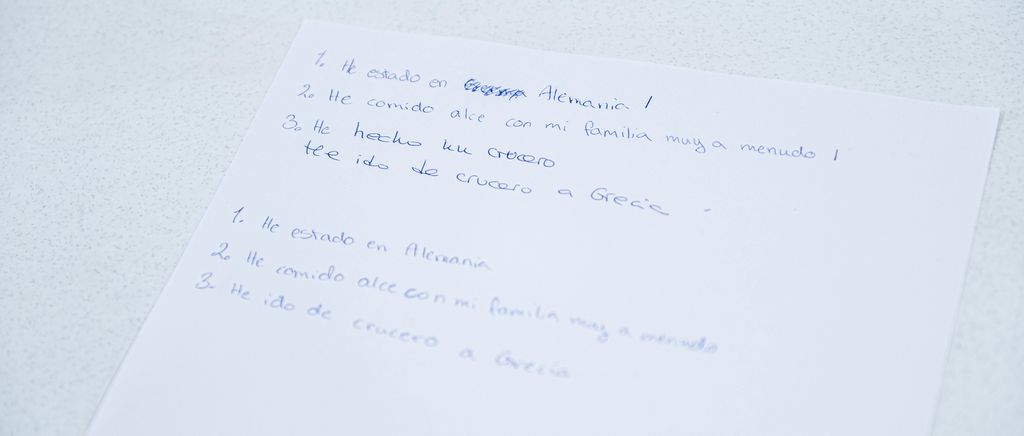 1. He estado en Alemania /
2. He comido alce con mi familia muy a menudo /
3. He hecho un crucero
He ido de crucero a Grecia
1. He estado en Alemania
2. He comido alce con mi familia muy a menudo
3. He ido de crucero a Grecia